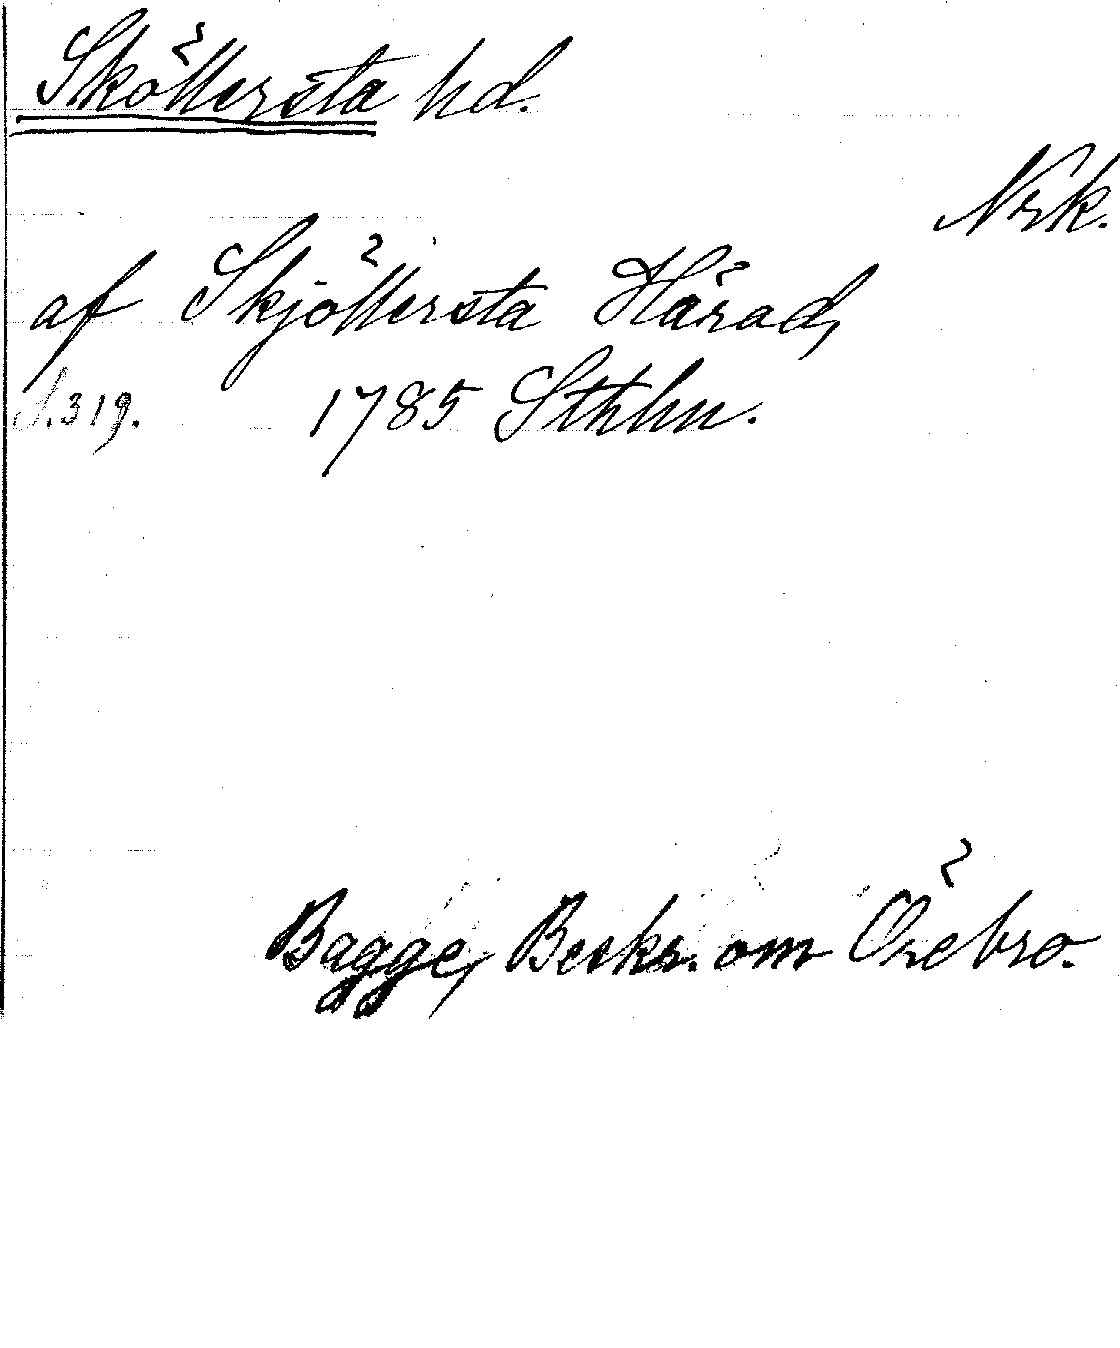 Sköllersta hd.
Nrk.
af Skjöllersta Härad,
S. 319. 1785 Sthlm.
Bagge, Beskr. om Örebro.